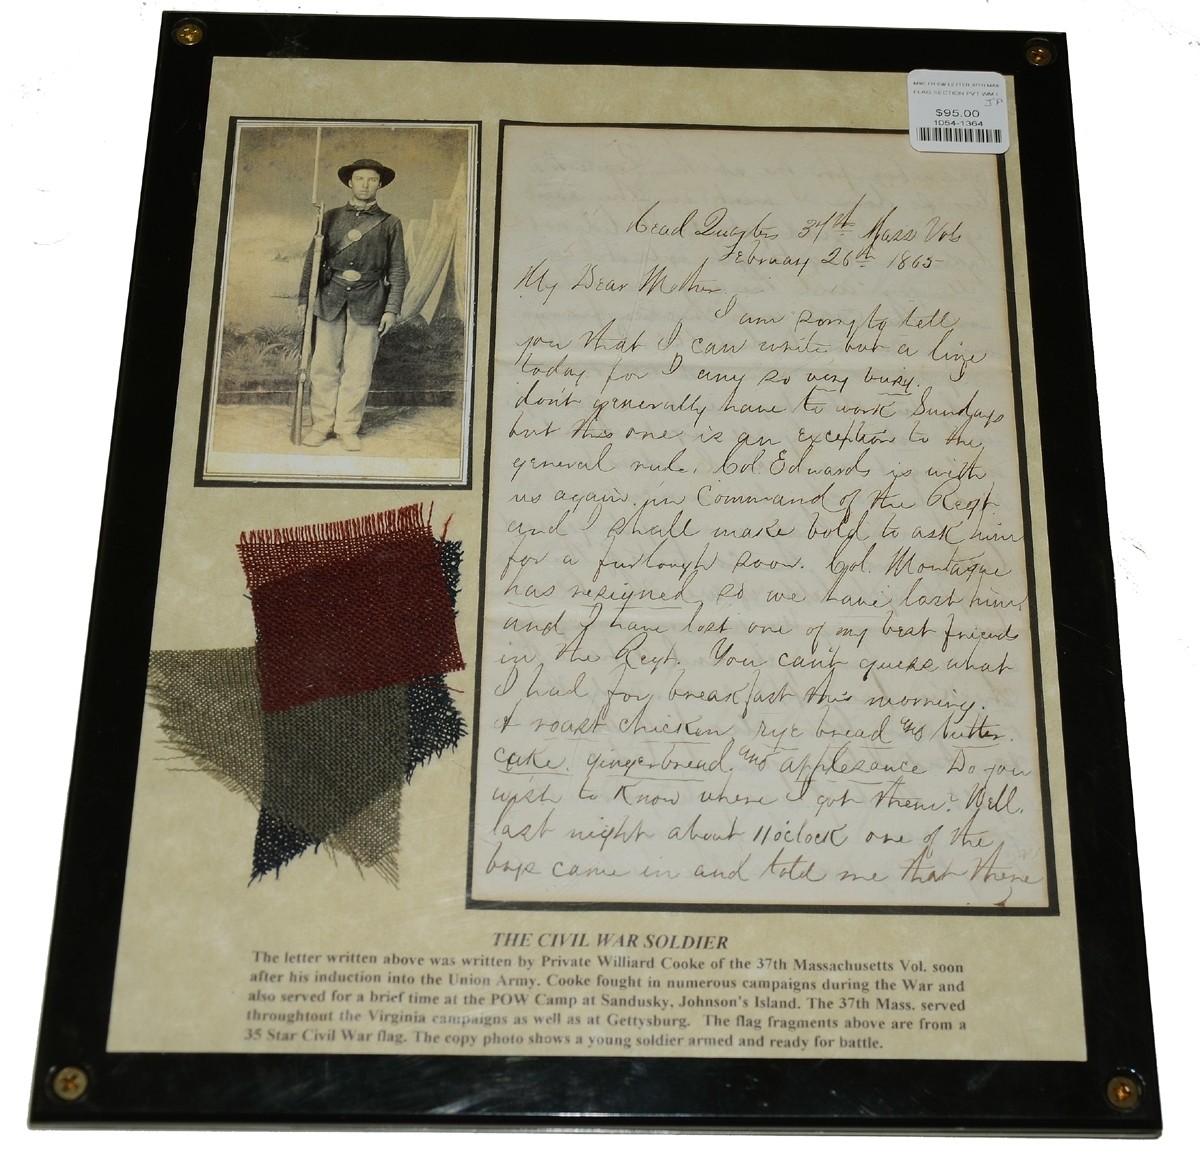 $95.00
1054-1364
Head Quarters 37th Mass Vols
February 26th 1865
My Dear Mother
I am sorry to tell
you that I can write but a line
today for I am so very busy. I
don't generally have to work Sundays
but this one is an exception to the
general rule. Col. Edwards is with
us again in Command of the Regt
and I shall make bold to ask him
for a furlough soon. Col. Montague
has resigned so we have lost him,
and I have lost one of my best friends
in the Regt. You can't guess what
I had for breakfast this morning.
A roast chicken rye bread and butter.
cake. gingerbread, and applesauce Do you
wish to know where I got them? Well.
last night about 11 o'clock one of the
boys came in and told me that there
THE CIVIL WAR SOLDIER
The letter written above was written by Private Williard Cooke of the 37th Massachusetts Vol. soon
after his induction into the Union Army. Cooke fought in numerous campaigns during the War and
also served for a brief time at the POW Camp at Sandusky, Johnson's Island. The 37th Mass. served
throughtout the Virginia campaigns as well as at Gettysburg. The flag fragments above are from a
35 Star Civil War flag. The copy photo shows a young soldier armed and ready for battle.